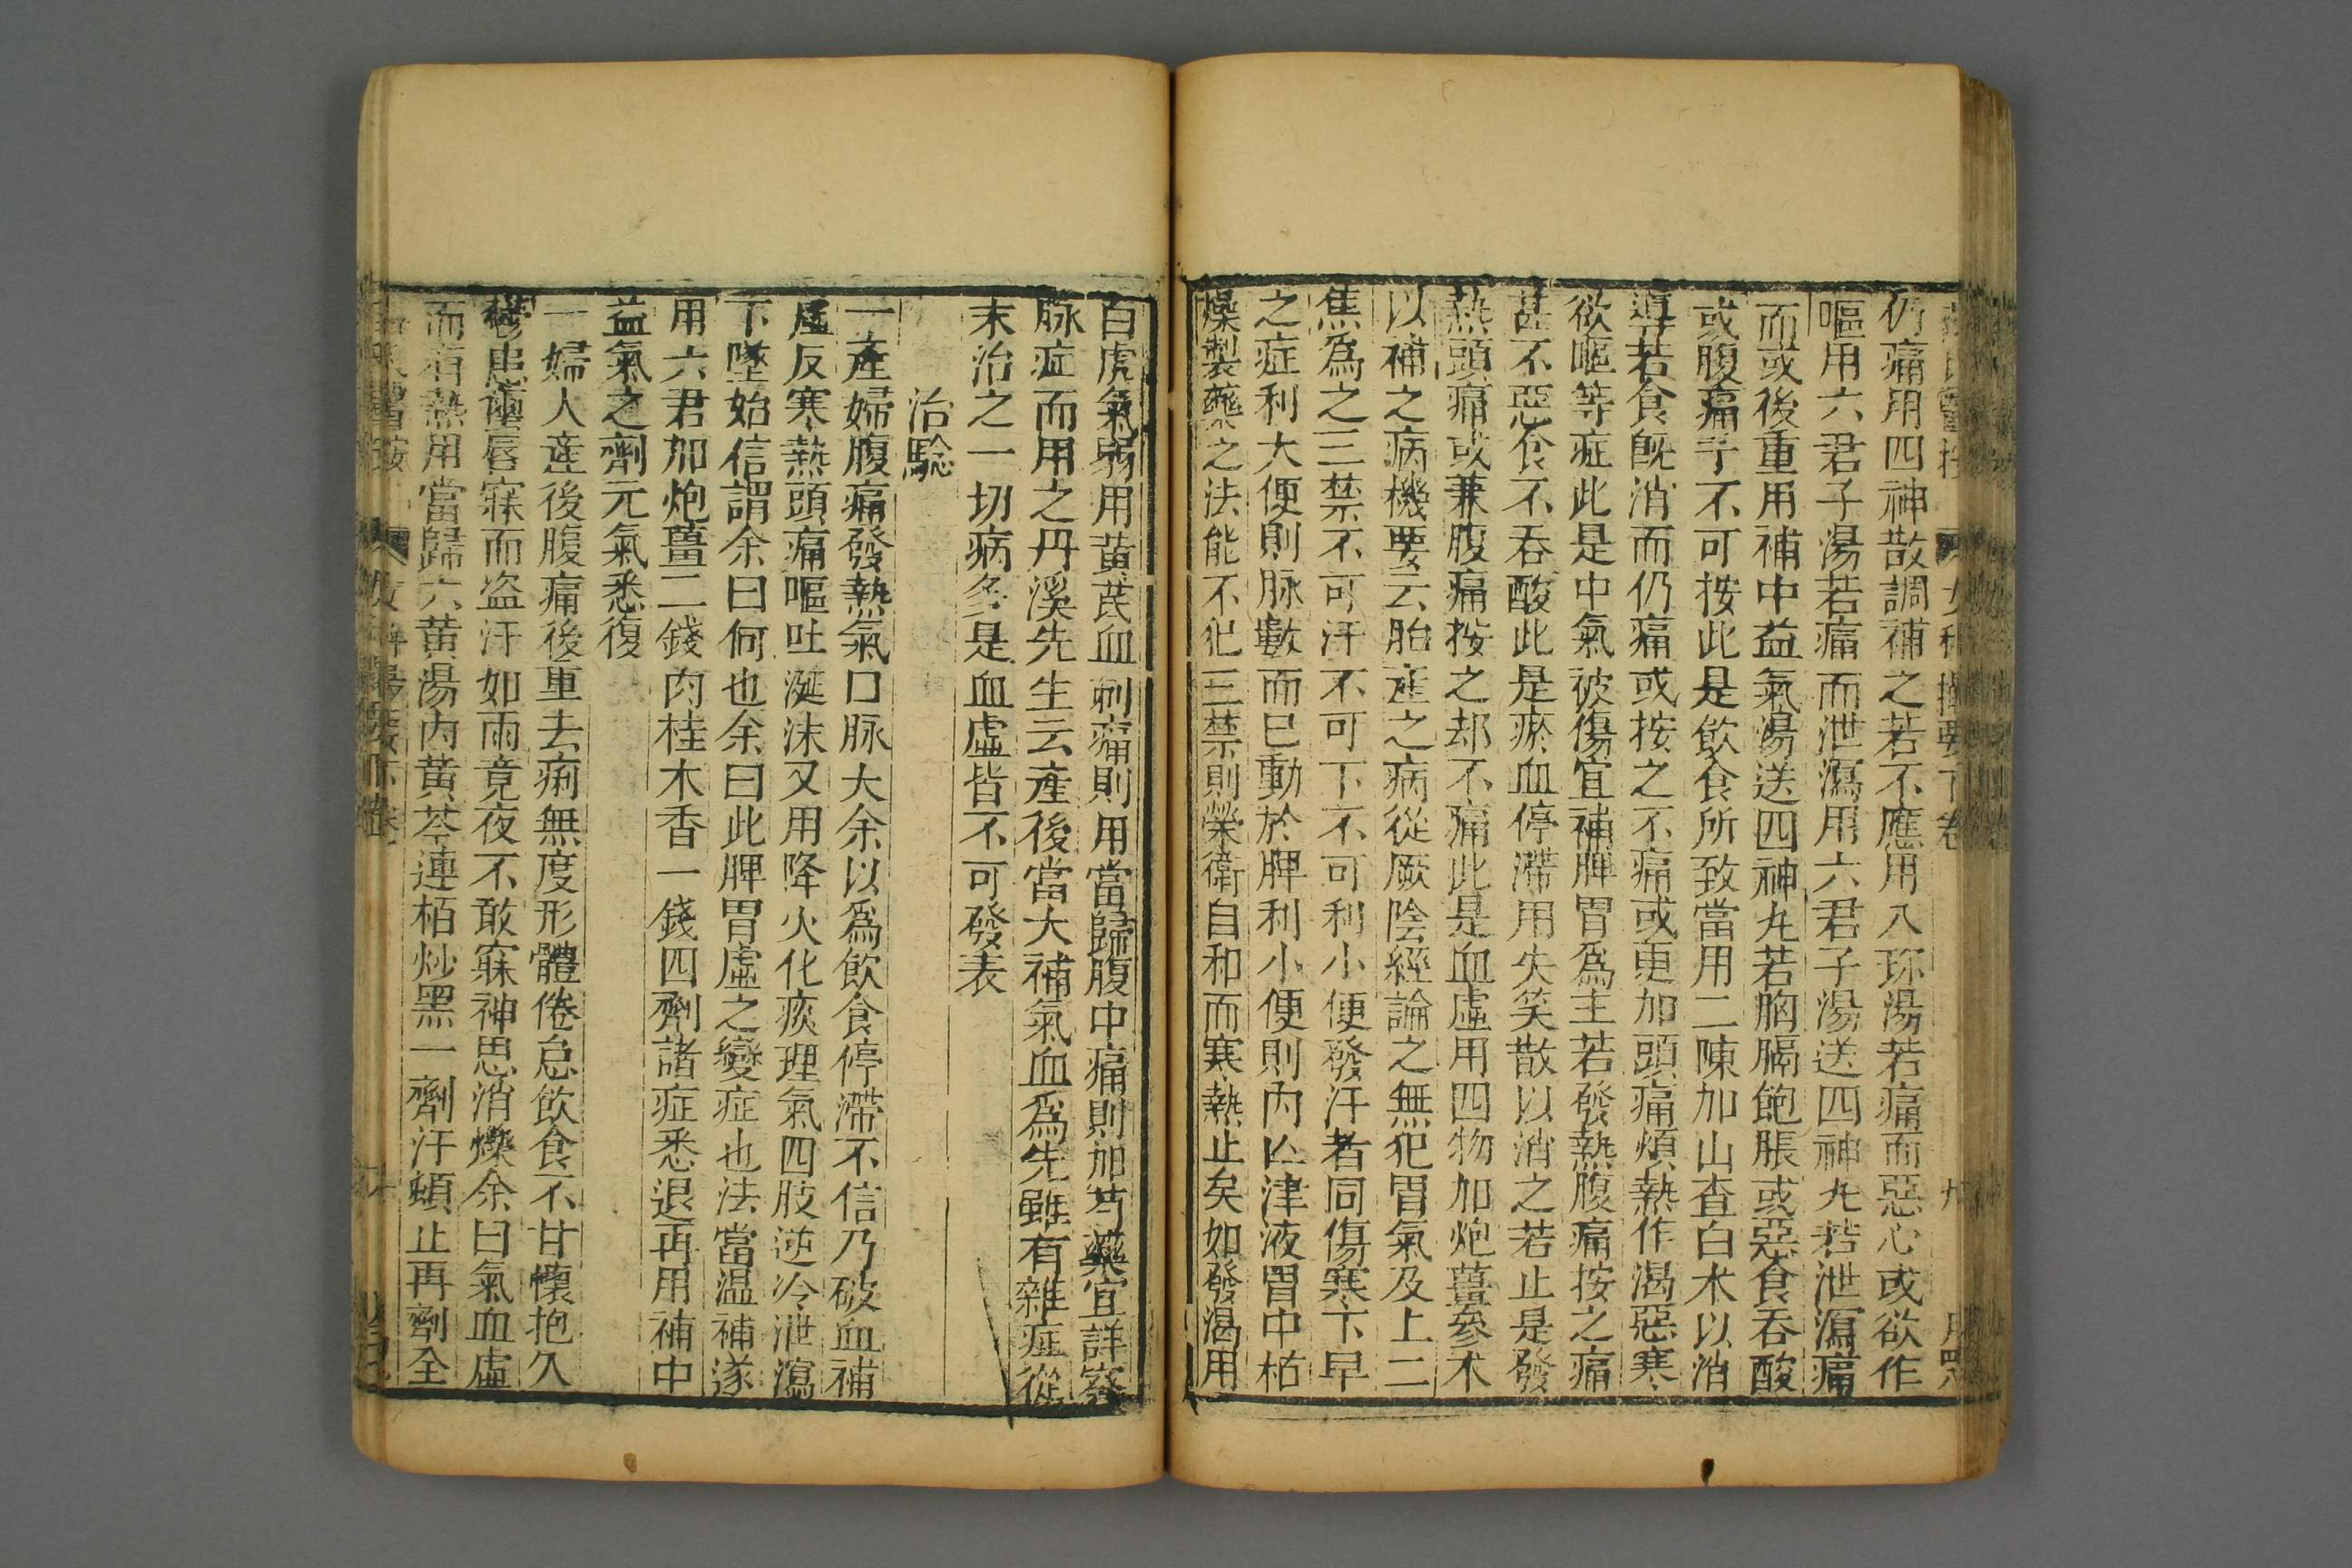 仍痛用四神散調補之若不應用八珎湯若痛而惡心或欲作
嘔用六君子湯若痛而泄瀉用六君子湯送四神丸若泄瀉痛
而或後重用補中益氣湯送四神丸若胸膈飽脹或惡食吞酸
或腹痛手不可按此是飲食所致當用二陳加山査白术以消
導若食既消而仍痛或按之不痛或更加頭痛煩熱作渴惡寒
欲嘔等症此是中氣被傷宜補脾胃爲主若發熱腹痛按之痛
甚不惡食不吞酸此是瘀血停滯用失笑散以消之若止是發
熱頭痛或兼腹痛按之却不痛此是血虛用四物加炮薑參术
以補之病機要云胎產之病從厥陰經論之無犯胃氣及上二
焦爲之三禁不可汗不可下不可利小便發汗者同傷寒下早
之症利大便則脉數而已動於脾利小便則內亾津液胃中枯
燥製藥之法能不犯三禁則榮衛自和而寒熱止矣如發渴用
白虎氣弱用黄茋血刺痛則用當歸腹中痛則加芍藥宜詳察
脉症而用之丹溪先生云產後當大補氣血爲先雖有雜症從
末治之一切病多是血虛皆不可發表
治騐
一產婦腹痛發熱氣口脉大余以爲飲食停滯不信乃破血補
虛反寒熱頭痛嘔吐涎沫又用降火化痰理氣四肢逆冷泄瀉
下墜始信謂余曰何也余曰此脾胃虛之變症也法當温補遂
用六君加炮薑二錢肉桂木香一錢四劑諸症悉退再用補中
益氣之劑元氣悉復
一婦人產後腹痛後重去痢無度形體倦怠飲食不甘懷抱久
鬱患茧唇寐而盗汗如雨竟夜不敢寐神思消爍余曰氣血虛
而有熱用當歸六黄湯內黄芩連栢炒黑一劑汗頓止再劑全